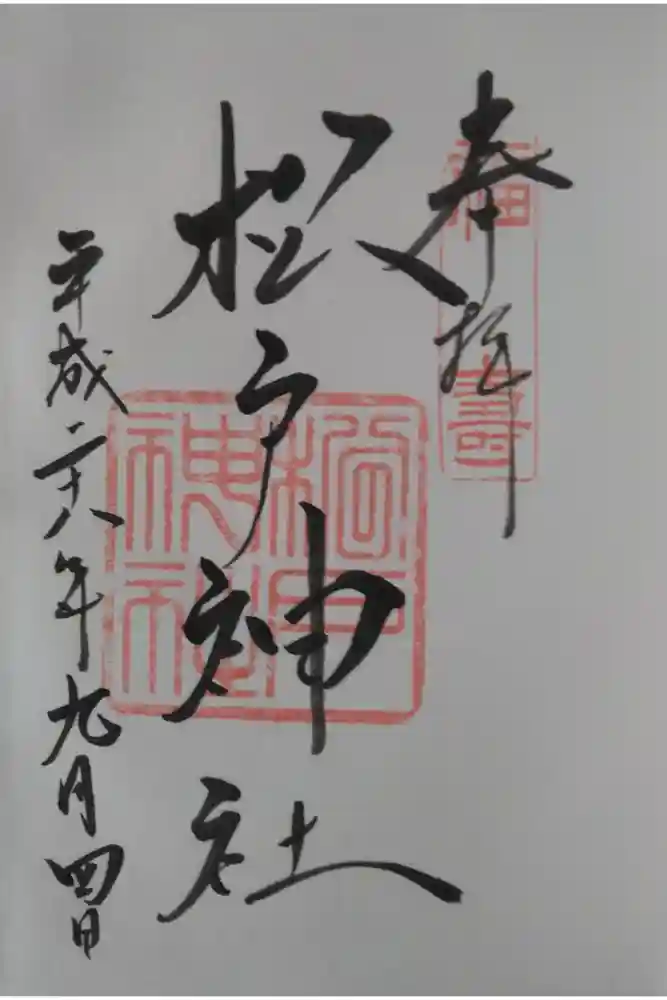 奉拝
福壽
松戸神社
松戸神社
平成二十八年九月四日